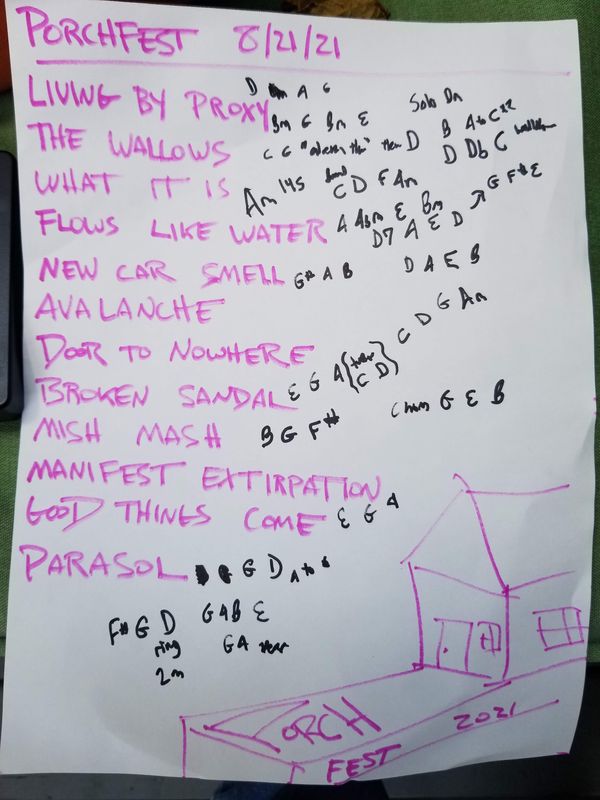 PORCHFEST 8/21/21
LIVING BY PROXY D A G
Bm G Bm E Solo Dm
THE WALLOWS C G then D B A to C
WHAT IT IS Am 145 C D F Am D Db C
FLOWS LIKE WATER A Abm E Bm G F# E
D7 A E D
NEW CAR SMELL G# A B D A E B
AVALANCHE
DOOR TO NOWHERE
BROKEN SANDAL E G A C D C D G Am
MISH MASH B G F# G E B
MANIFEST EXTIRPATION
GOOD THINGS COME E G A
PARASOL G D A to G
F# G D G A B E
ring G A
2m
PORCH
FEST 2021